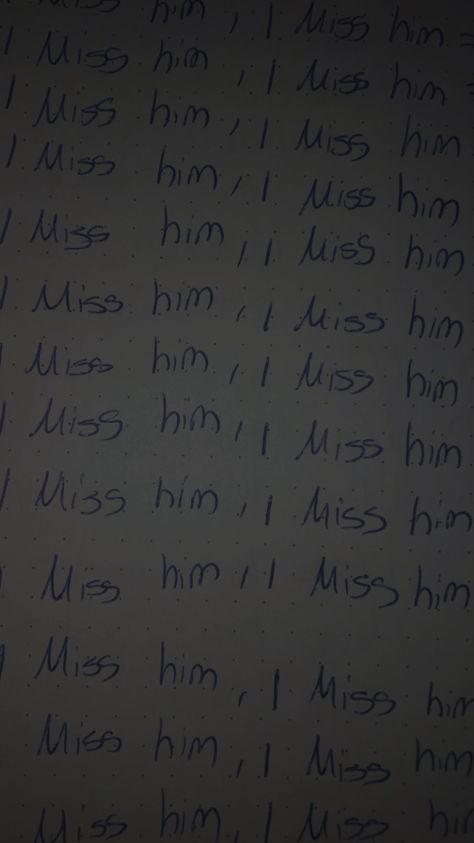 Miss him, I Miss him =
I Miss him, I Miss him =
I Miss him, I Miss him
I Miss him, I Miss him
I Miss him, I Miss him
I Miss him, I Miss him
I Miss him, I Miss him
I Miss him, I Miss him
I Miss him, I Miss him
I Miss him, I Miss him
I Miss him, I Miss him
Miss him, I Miss him
Miss him, I Miss him